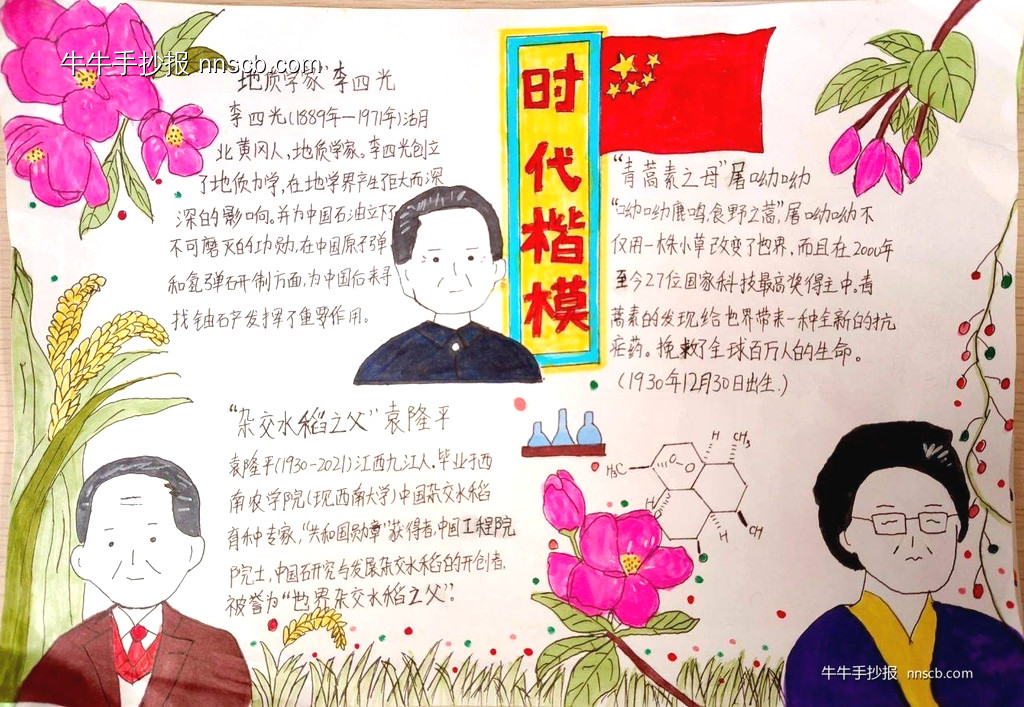 牛牛手抄报 nnscb.com
"地质学家"李四光
李四光(1889年—1971年)湖月
北黄冈人,地质学家。李四光创立
了地质力学,在地学界产生了巨大而深
深的影响。并为中国石油立下了
不可磨灭的功勋,在中国原子弹
和氢弹研制方面,为中国后来寻
找铀矿发挥了重要作用。
时代楷模
"青蒿素之母"屠呦呦
"呦呦鹿鸣,食野之蒿",屠呦呦不
仅用一株小草改变了世界,而且在2000年
至今27位国家科技最高奖得主中。青
蒿素的发现给世界带来一种全新的抗
疟药。挽救了全球百万人的生命。
(1930年12月30日出生.)
"杂交水稻之父"袁隆平
袁隆平(1930-2021)江西九江人.毕业于西
南农学院(现西南大学)中国杂交水稻
育种专家,"共和国勋章"获得者,中国工程院
院士,中国研究与发展杂交水稻的开创者,
被誉为"世界杂交水稻之父"。
H₃C
O
O
H
CH₃
O
H
CH
牛牛手抄报 nnscb.com